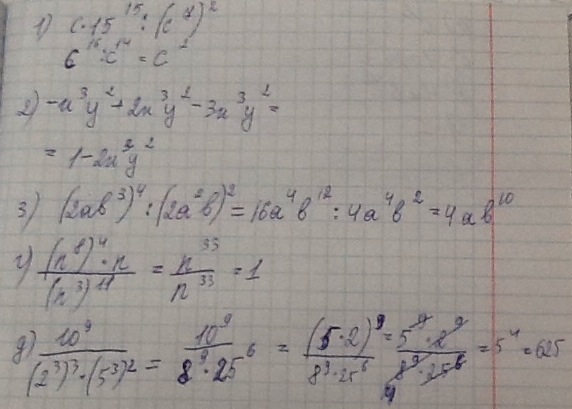 1) c·15¹⁵ : (c⁷)²
c¹⁶ : c¹⁴ = c²
2) -x³y² + 2x³y² - 3x³y² =
= 1 - 2x³y²
3) (2ab³)⁴ : (2a²b)² = 16a⁴b¹² : 4a⁴b² = 4ab¹⁰
г) (n⁸)⁴·n / (n³)¹¹ = n³³ / n³³ = 1
д) 10⁹ / (2³)³·(5³)² = 10⁹ / 8⁹·25⁶ = (5·2)⁹ / 8⁹·25⁶ = 5⁹·2⁹ / 8⁹·25⁶ = 5⁴ = 625